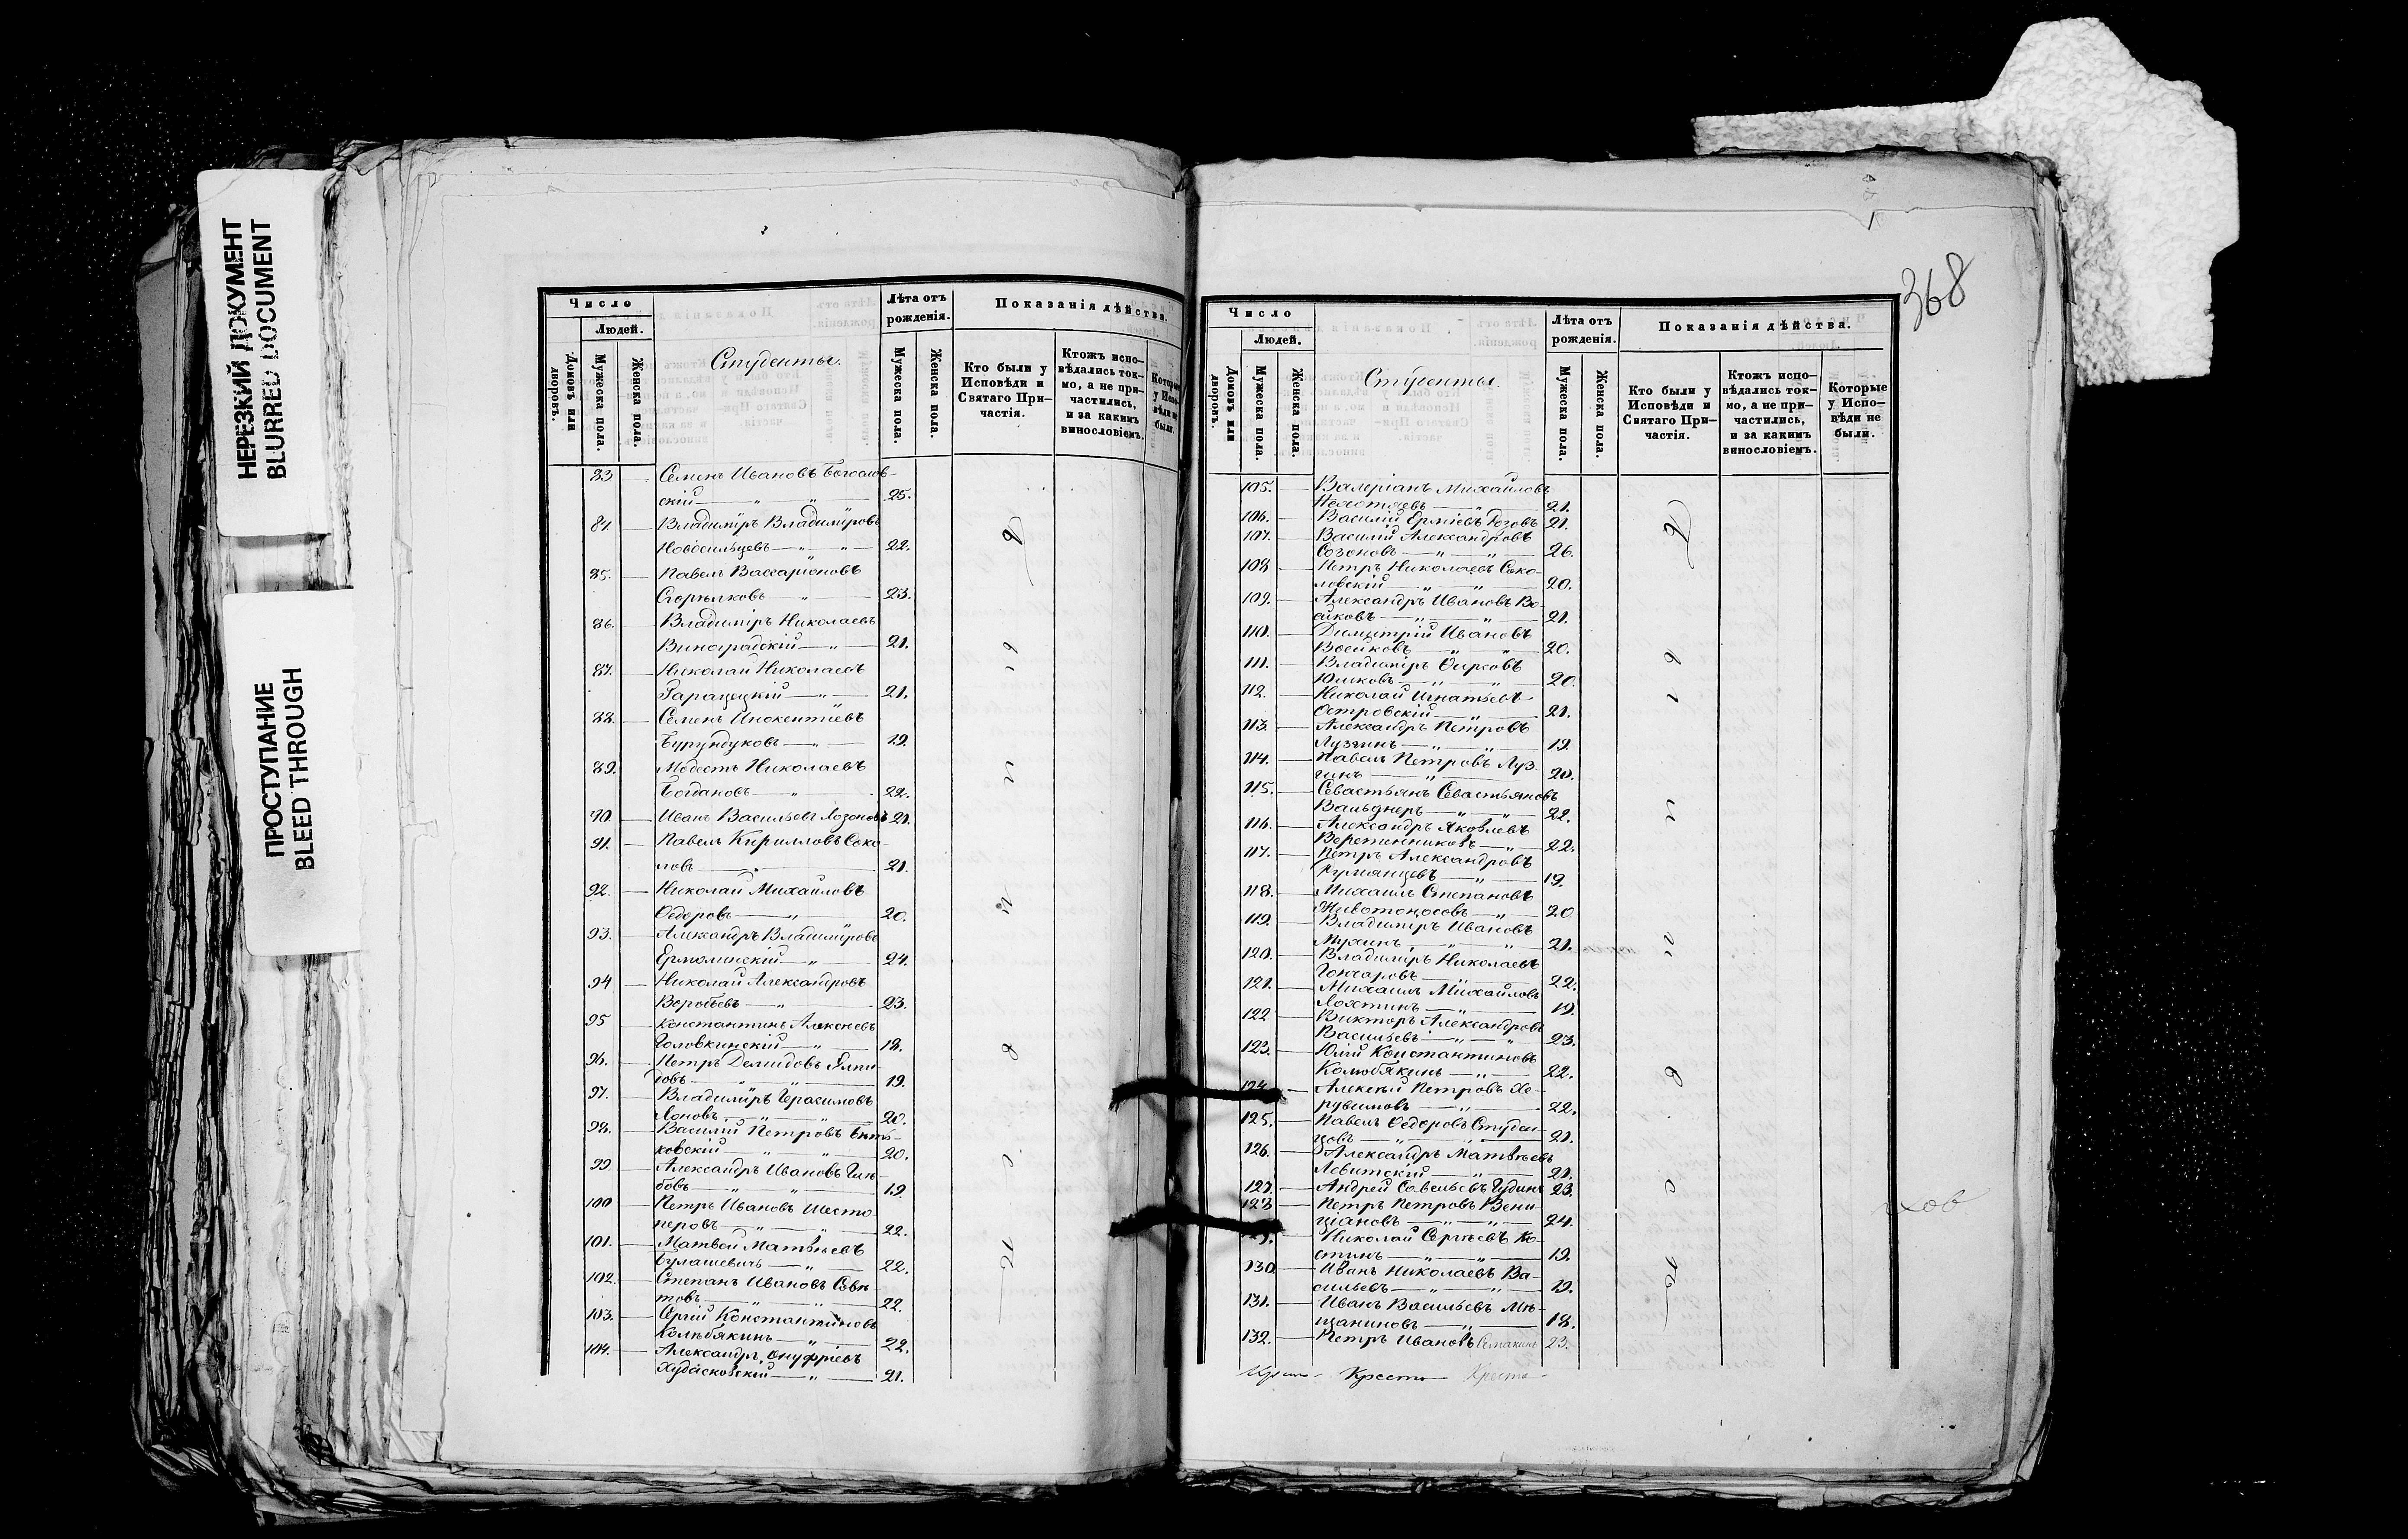 НЕРЕЗКИЙ ДОКУМЕНТ
BLURRED DOCUMENT
ПРОСТУПАНИЕ
BLEED THROUGH
Число
Людей.
Домовъ или дворовъ.
Мужеска пола.
Женска пола.
Студенты.
Лѣта отъ рожденія.
Мужеска пола.
Женска пола.
Показанія дѣйства.
Кто были у Исповѣди и Святаго Причастія.
Ктожъ исповѣдались токмо, а не причастились, и за какимъ винословіемъ.
Которые у Исповѣди не были.
83 Семенъ Ивановъ Богослов-
скій 25.
84. Владиміръ Владиміровъ
Новосильцевъ 22.
85. Павелъ Вассаріоновъ
23.
86. Владиміръ Николаевъ
Виноградскій 21.
87. Николай Николаевъ
21.
88. Семенъ Инокентіевъ
Бурундуковъ 19.
89. Модестъ Николаевъ
Богдановъ 22.
90. Иванъ Васильевъ 21.
91. Павелъ Кирилловъ Соко-
ловъ 21.
92. Николай Михайловъ
Ѳедоровъ 20.
93. Александръ Владиміровъ
Ермолинскій 24.
94 Николай Александровъ
Воробьевъ 23.
95 Константинъ Алексѣевъ
Головкинскій 18.
96. Петръ Демидовъ
19.
97. Владиміръ Герасимовъ
20.
98. Василій Петровъ
ковскій 20.
99 Александръ Ивановъ Глѣ-
бовъ 19.
100 Петръ Ивановъ Шесто-
перовъ 22.
101. Матвѣй Матвѣевъ
Булашевичъ 22.
102. Степанъ Ивановъ
товъ 22.
103. Сергій Константиновъ
Колюбякинъ 22.
104. Александръ Онуфріевъ
Худасковскій 21.
368
Число
Людей.
Домовъ или дворовъ.
Мужеска пола.
Женска пола.
Студенты.
Лѣта отъ рожденія.
Мужеска пола.
Женска пола.
Показанія дѣйства.
Кто были у Исповѣди и Святаго Причастія.
Ктожъ исповѣдались токмо, а не причастились, и за какимъ винословіемъ.
Которые у Исповѣди не были.
105. Валеріанъ Михайловъ
21.
106. Василій Ерміевъ Розовъ 21.
107. Василій Александровъ
Созоновъ 26.
108 Петръ Николаевъ Соко-
ловскій 20.
109. Александръ Ивановъ Во-
ейковъ 21.
110. Димитрій Ивановъ
Воейковъ 20.
111. Владиміръ Ѳирсовъ
Юшковъ 20.
112. Николай Игнатьевъ
Островскій 21.
113. Александръ Петровъ
Лузгинъ 19.
114. Павелъ Петровъ Луз-
гинъ 20.
115. Севастьянъ Севастьяновъ
Вальднеръ 22.
116. Александръ Яковлевъ
Веретенниковъ 22.
117. Петръ Александровъ
Румянцевъ 19.
118. Михаилъ Степановъ
Животоносовъ 20
119. Владиміръ Ивановъ
21.
120. Владиміръ Николаевъ
Гончаровъ 22.
121. Михаилъ Михайловъ
Лохтинъ 19.
122 Викторъ Александровъ
Васильевъ 23.
123. Юлій Константиновъ
Колюбякинъ 22.
124. Алексѣй Петровъ Хе-
рувимовъ 22.
125. Павелъ Ѳедоровъ Студен-
цовъ 21.
126. Александръ Матвѣевъ
Левитскій 21.
127. Андрей Савельевъ Гудинъ 23.
128 Петръ Петровъ Вени-
ціановъ 24.
Николай Сергѣевъ Ко-
стинъ 19.
130. Иванъ Николаевъ Ва-
сильевъ 19.
131. Иванъ Васильевъ Мѣ-
щаниновъ 18.
132. Петръ Ивановъ Семакинъ 23.
Кресто